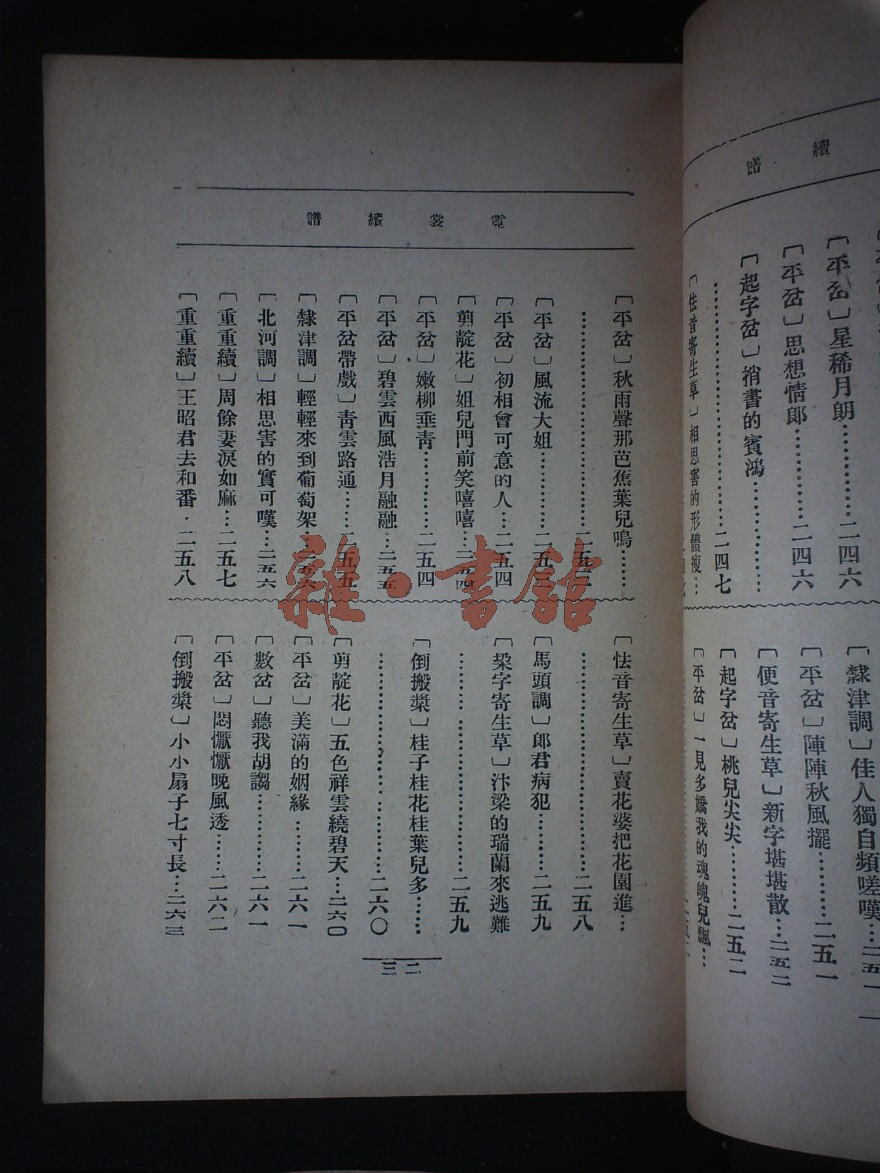 續譜
〔平岔〕星稀月朗………二四六
〔平岔〕思想情郎………二四六
〔起字岔〕捎書的賓鴻…………
……………………二四七
〔怯音寄生草〕相思害的形體瘦…
〔隸津調〕佳人獨自頻嗟嘆…二五一
〔平岔〕陣陣秋風擺……二五一
〔便音寄生草〕新字堪堪散…二五二
〔起字岔〕桃兒尖尖………二五二
〔平岔〕一見多嬌我的魂魄兒飄…
霓裳續譜
〔平岔〕秋雨聲那芭蕉葉兒鳴……
……………………二五三
〔平岔〕風流大姐………二五三
〔平岔〕初相會可意的人…二五四
〔剪靛花〕姐兒門前笑嘻嘻…二五四
〔平岔〕嫩柳垂青………二五四
〔平岔〕碧雲西風浩月融融…二五五
〔平岔帶戲〕靑雲路通……二五五
〔隸津調〕輕輕來到葡萄架…二五六
〔北河調〕相思害的實可嘆…二五六
〔重重續〕周餘妻淚如麻…二五七
〔重重續〕王昭君去和番．二五八
〔怯音寄生草〕賣花婆把花園進…
……………………二五八
〔馬頭調〕郎君病犯………二五九
〔梁字寄生草〕汴梁的瑞蘭來逃難
……………………二五九
〔倒搬槳〕桂子桂花桂葉兒多……
……………………二六〇
〔剪靛花〕五色祥雲繞碧天…二六〇
〔平岔〕美滿的姻緣………二六一
〔數岔〕聽我胡謅…………二六一
〔平岔〕悶懨懨晚風透……二六二
〔倒搬槳〕小小扇子七寸長…二六三
二三
雜·書舘